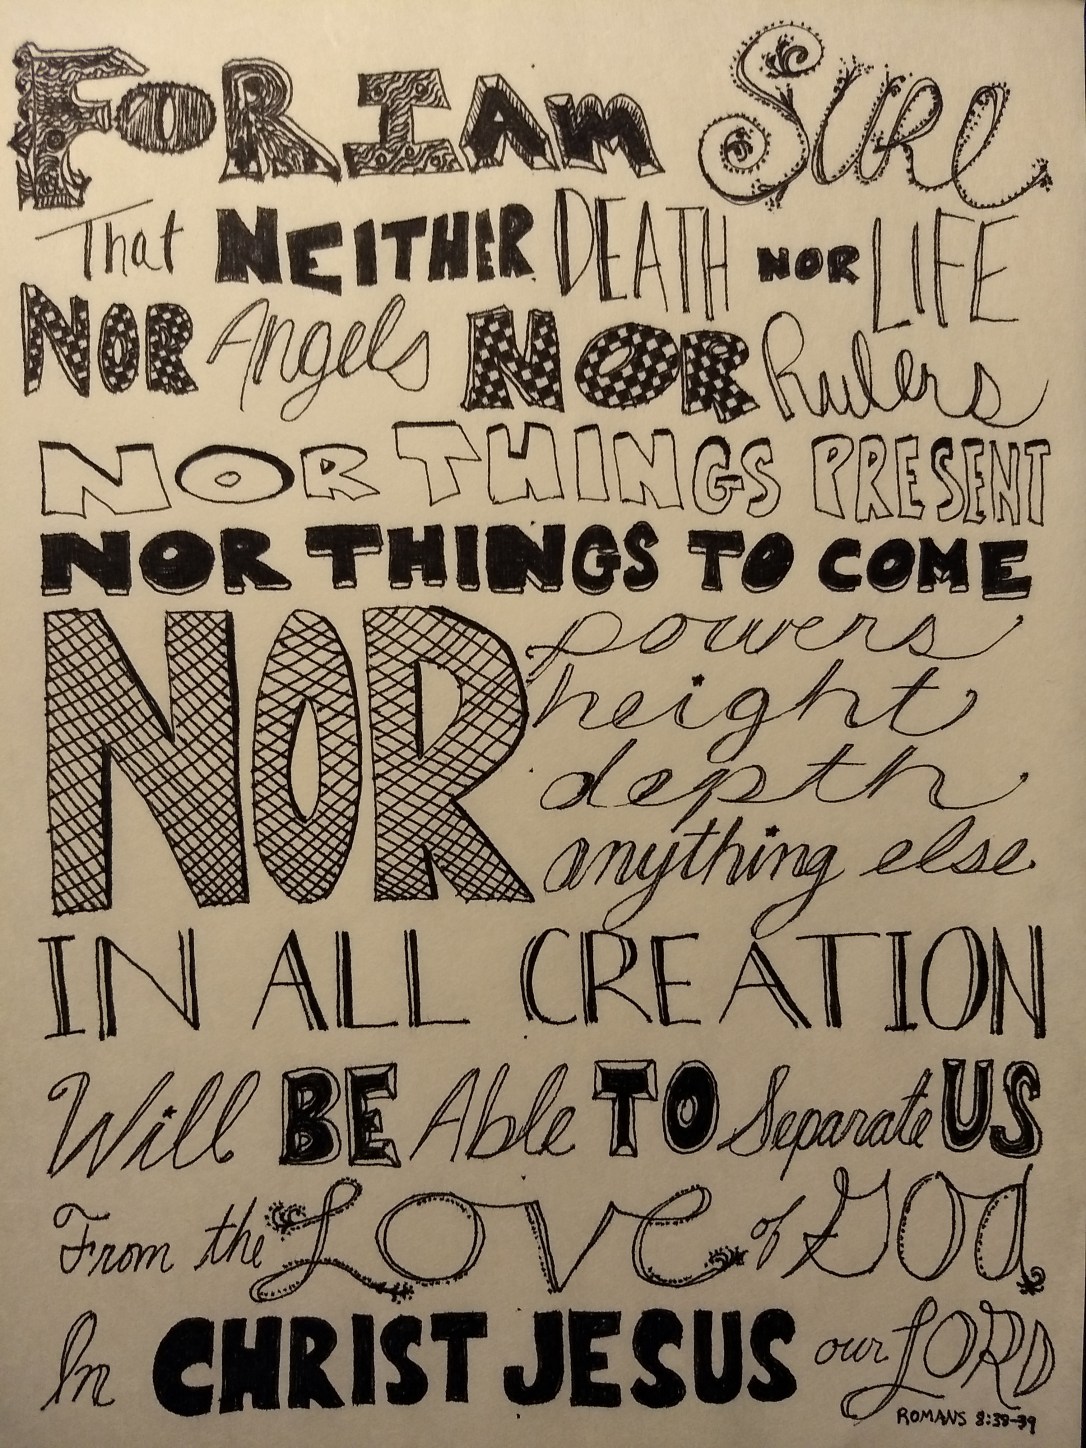 FOR I AM Sure
That NEITHER DEATH NOR LIFE
NOR Angels NOR Rulers
NOR THINGS PRESENT
NOR THINGS TO COME
NOR powers
height
depth
anything else
IN ALL CREATION
Will BE Able TO Separate US
From the LOVE of GOD
In CHRIST JESUS our LORD
ROMANS 8:38-39